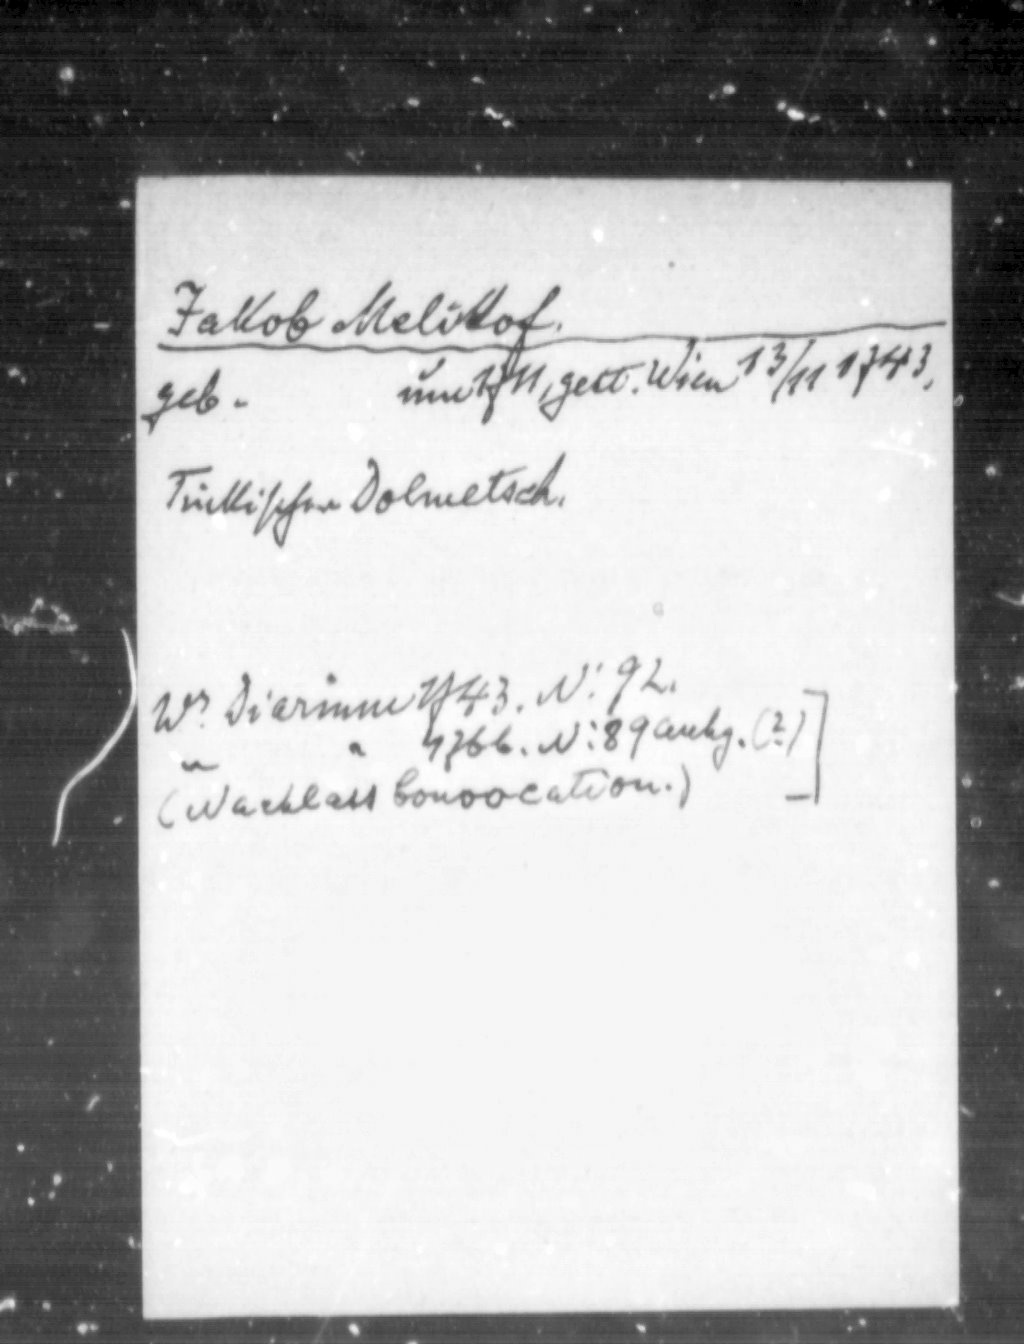 Jakob Melikof.
geb. um 1711, gest. Wien 13/11 1743.
Türkischer Dolmetsch.
Wr. Diarium 1743. N: 92.
" " 1766. N: 89 anhg. (?)
(Nachlass Convocation.)